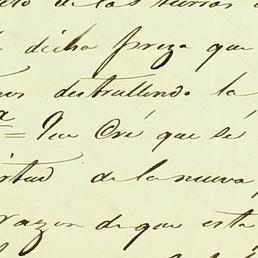 de las tierras
dicha pieza que
destrullendo la
= Que Cré que se
rtud de la nueva
razon de que esta